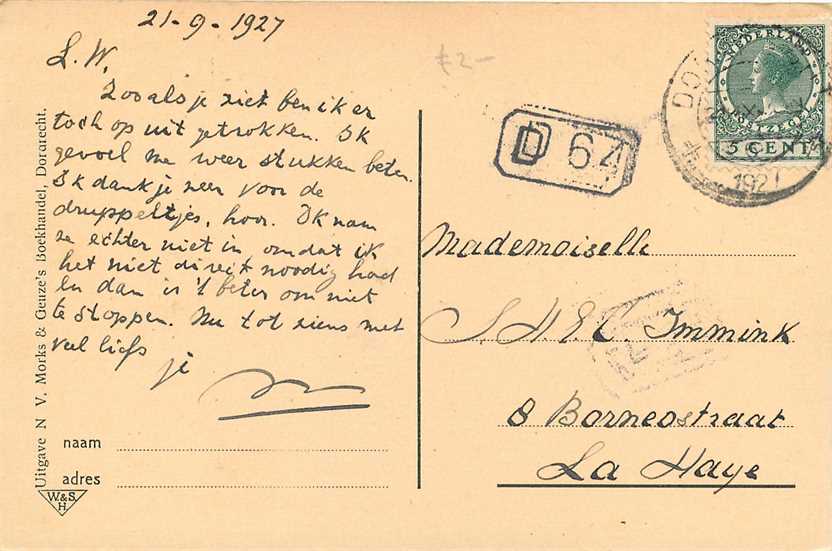 21-9-1927
£2-
L.W.
Zooals je ziet ben ik er
toch op uit getrokken. Ik
gevoel me weer stukken beter.
Ik dank je zeer voor de
druppeltjes, hoor. Ik nam
ze echter niet in omdat ik
het niet direkt noodig had
En dan is 't beter om niet
te stoppen. Nu tot ziens met
veel liefs
je
naam
adres
Uitgave N V. Morks & Geuze's Boekhandel, Dordrecht.
W.& S.
H
D 64
NEDERLAND
POSTZEGEL
5 CENT
1927
Mademoiselle
Immink
8 Borneostraat
La Haye